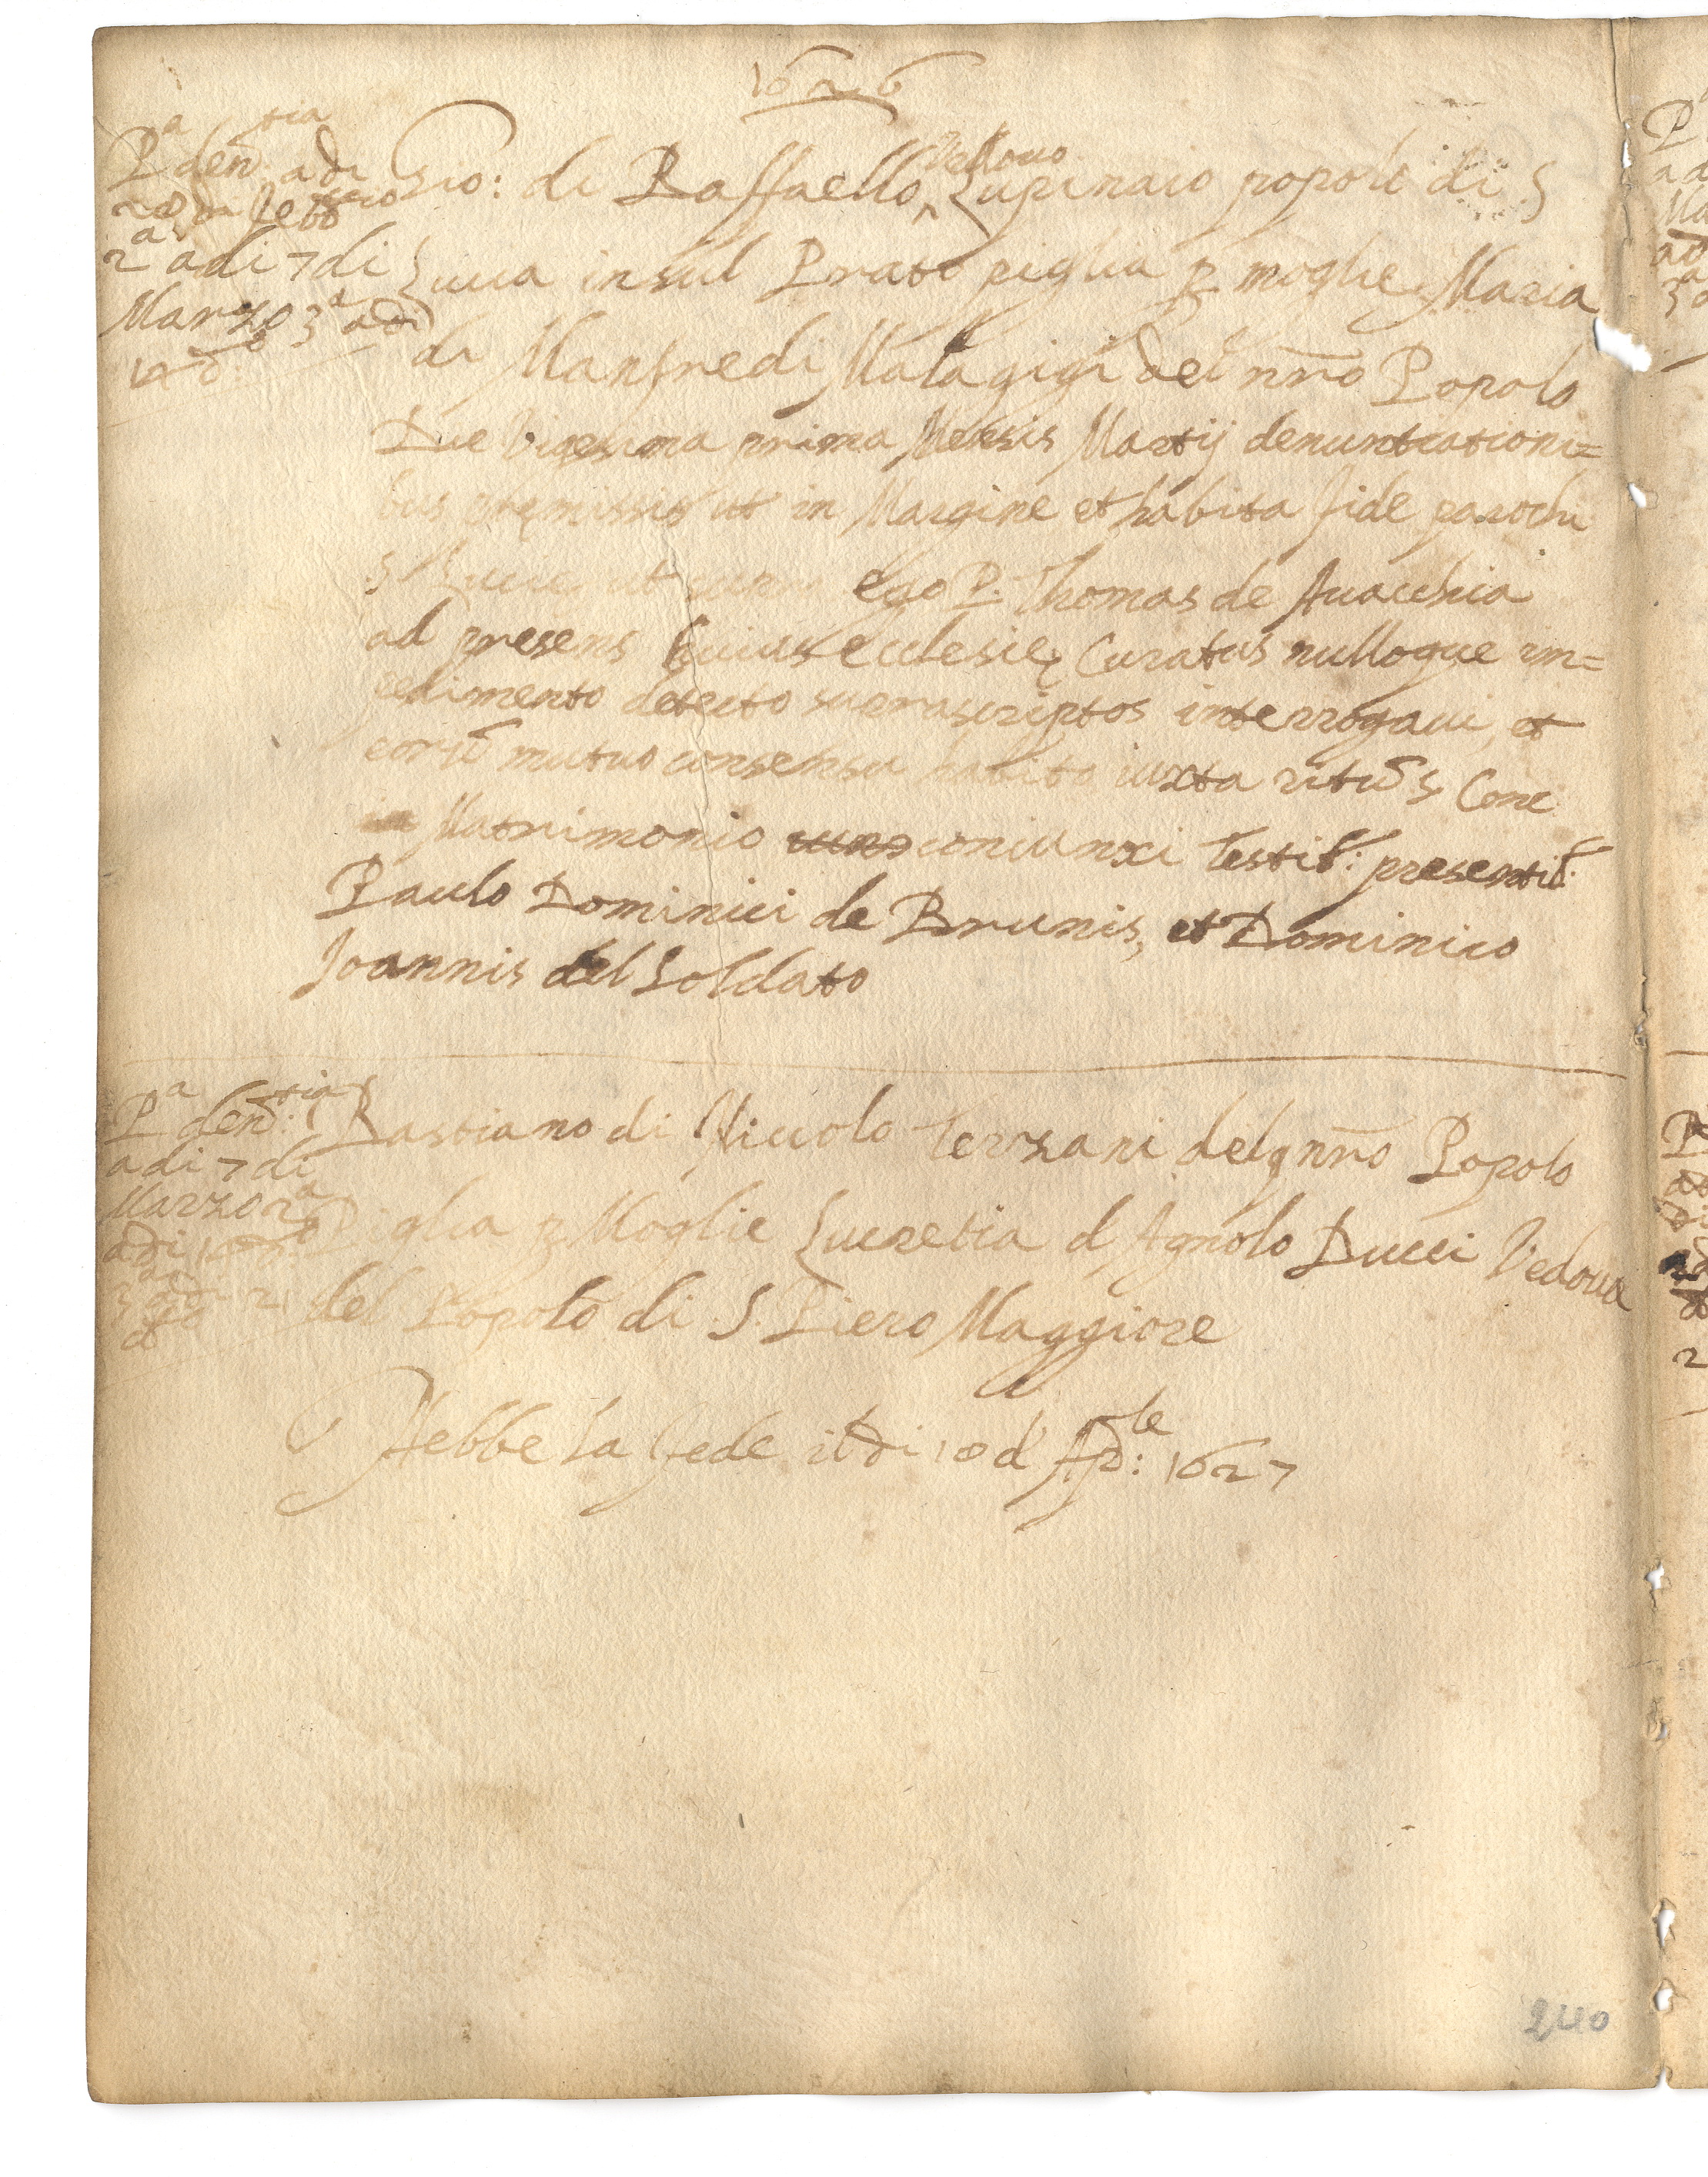 1626
Pᵃ denᵗⁱᵃ adi
di Febbʳᵃⁱᵒ
2ᵃ adi 7 di
Marzo 3ᵃ adi
dº
Gio: di Raffaello Vedouo Lupinaio popolo di S
Lucia in sul Prato piglia p moglie Maria
di Manfredi Malagigi del nr̃o Popolo
Die Vigesima prima Mensis Martij denuntiationi=
bus premissis ut in Margine et habita fide parochi
S Lucie ut ego P. Thomas de Auacchia
ad presens huius Ecclesię Curatus nulloque im=
pedimento detecto suprascriptos interrogaui, et
eorũ mutuo consensu habito iuxta ritũ S Conc
in Matrimonio coniunxi Testib: presentib:
Paulo Dominici de Brunis, et Dominico
Joannis del Soldato
Pᵃ denᵗⁱᵃ:
adi 7 di
Marzo 2ᵃ
adi dº
3ᵃ adi 21
dº
Bastiano di Niccolo Terzani del nr̃o Popolo
Piglia p Moglie Lucretia d Agnolo Ducci Vedoua
del Popolo di S. Piero Maggiore
Hebbe la fede il di 18 d Apˡᵉ: 1627
240